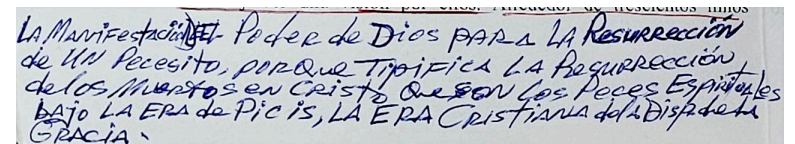 trescientos niños
LA Manifestación DEL Poder de Dios PARA LA Resurrección
de UN Pececito, PORQUE TIPIFICA LA Resurrección
de los Muertos en Cristo, Que SON LOS Peces Espirituales
bajo LA ERA de Picis, LA ERA CRISTIANA de la Disp. de la
GRACIA.